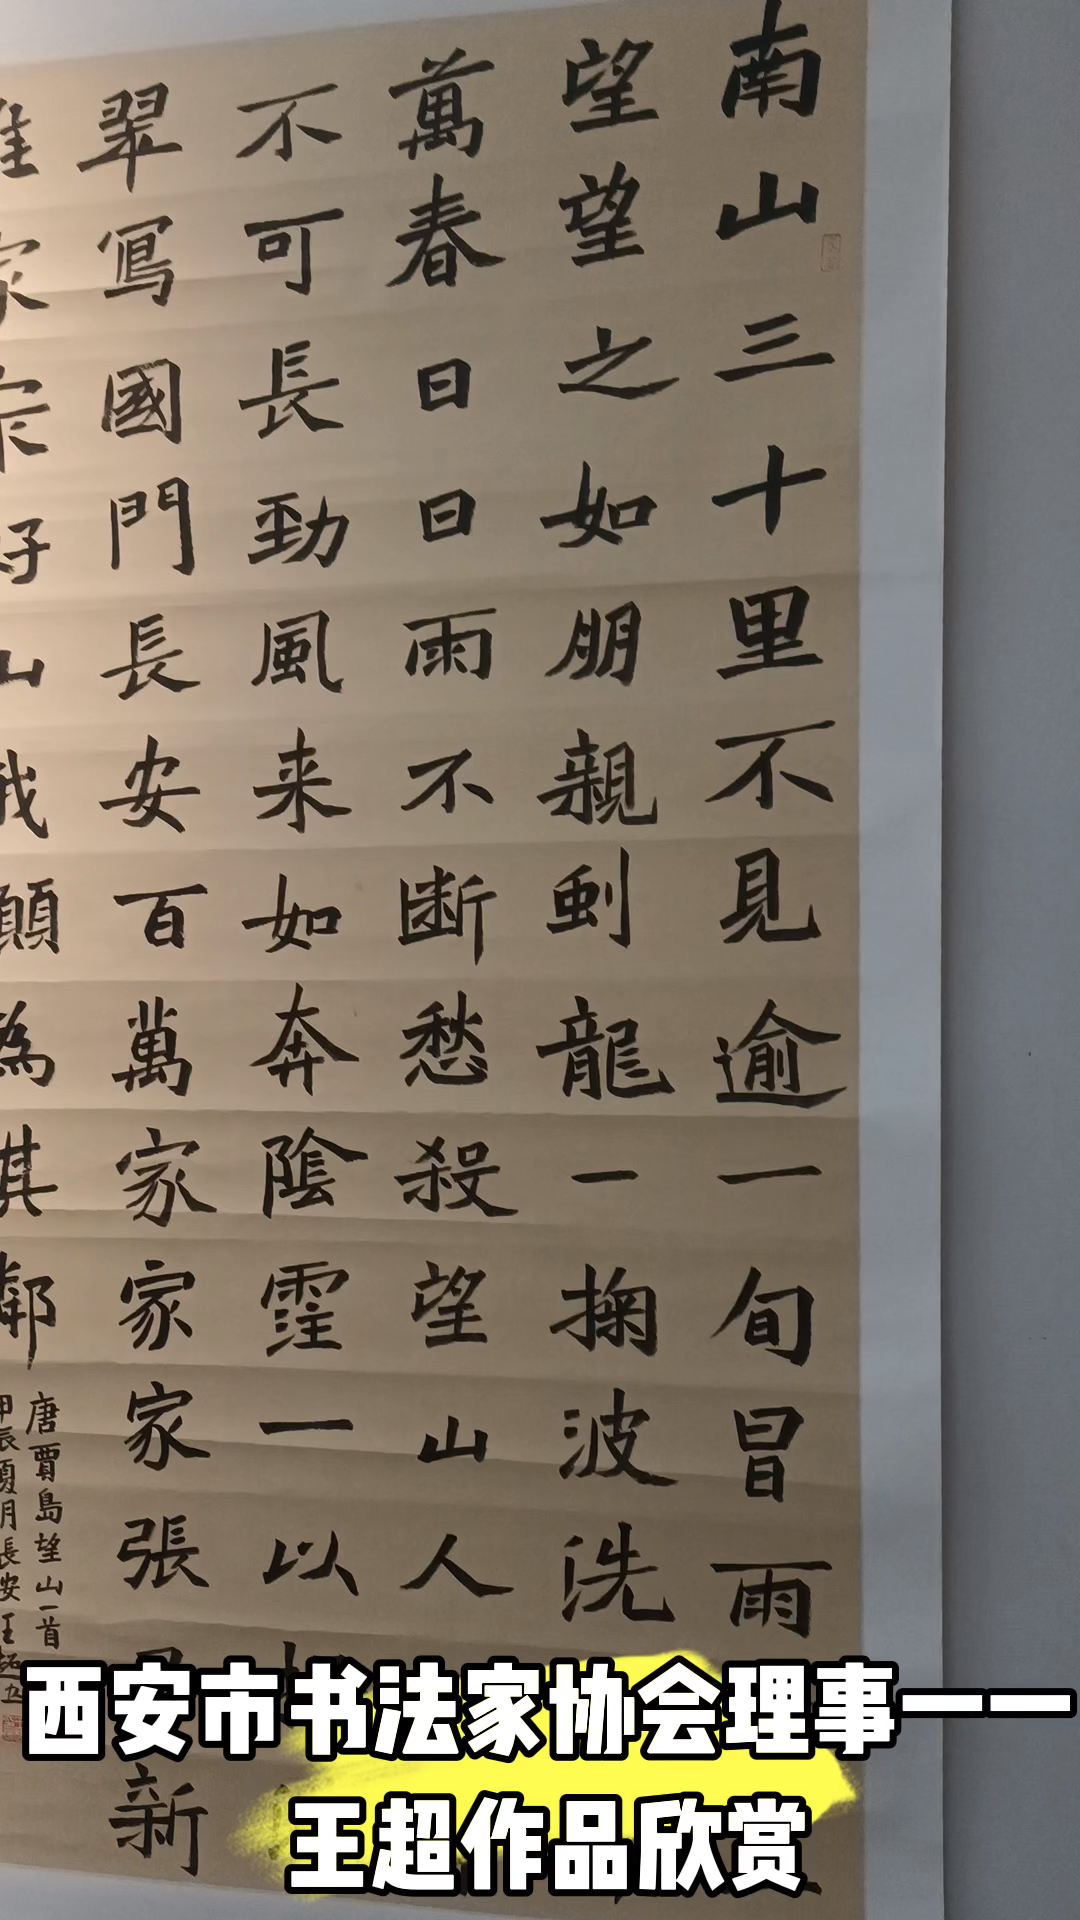 南山三十里不見逾一旬冒雨
望望之如朋親虬龍一掬波洗
萬春日日雨不断愁殺望山人
不可長勁風来如奔陰霪一以
翠寫國門長安百萬家家家張
新
家
好山我願為其鄰
唐賈島望山一首
甲辰夏月長安王
西安市书法家协会理事一一
王超作品欣赏